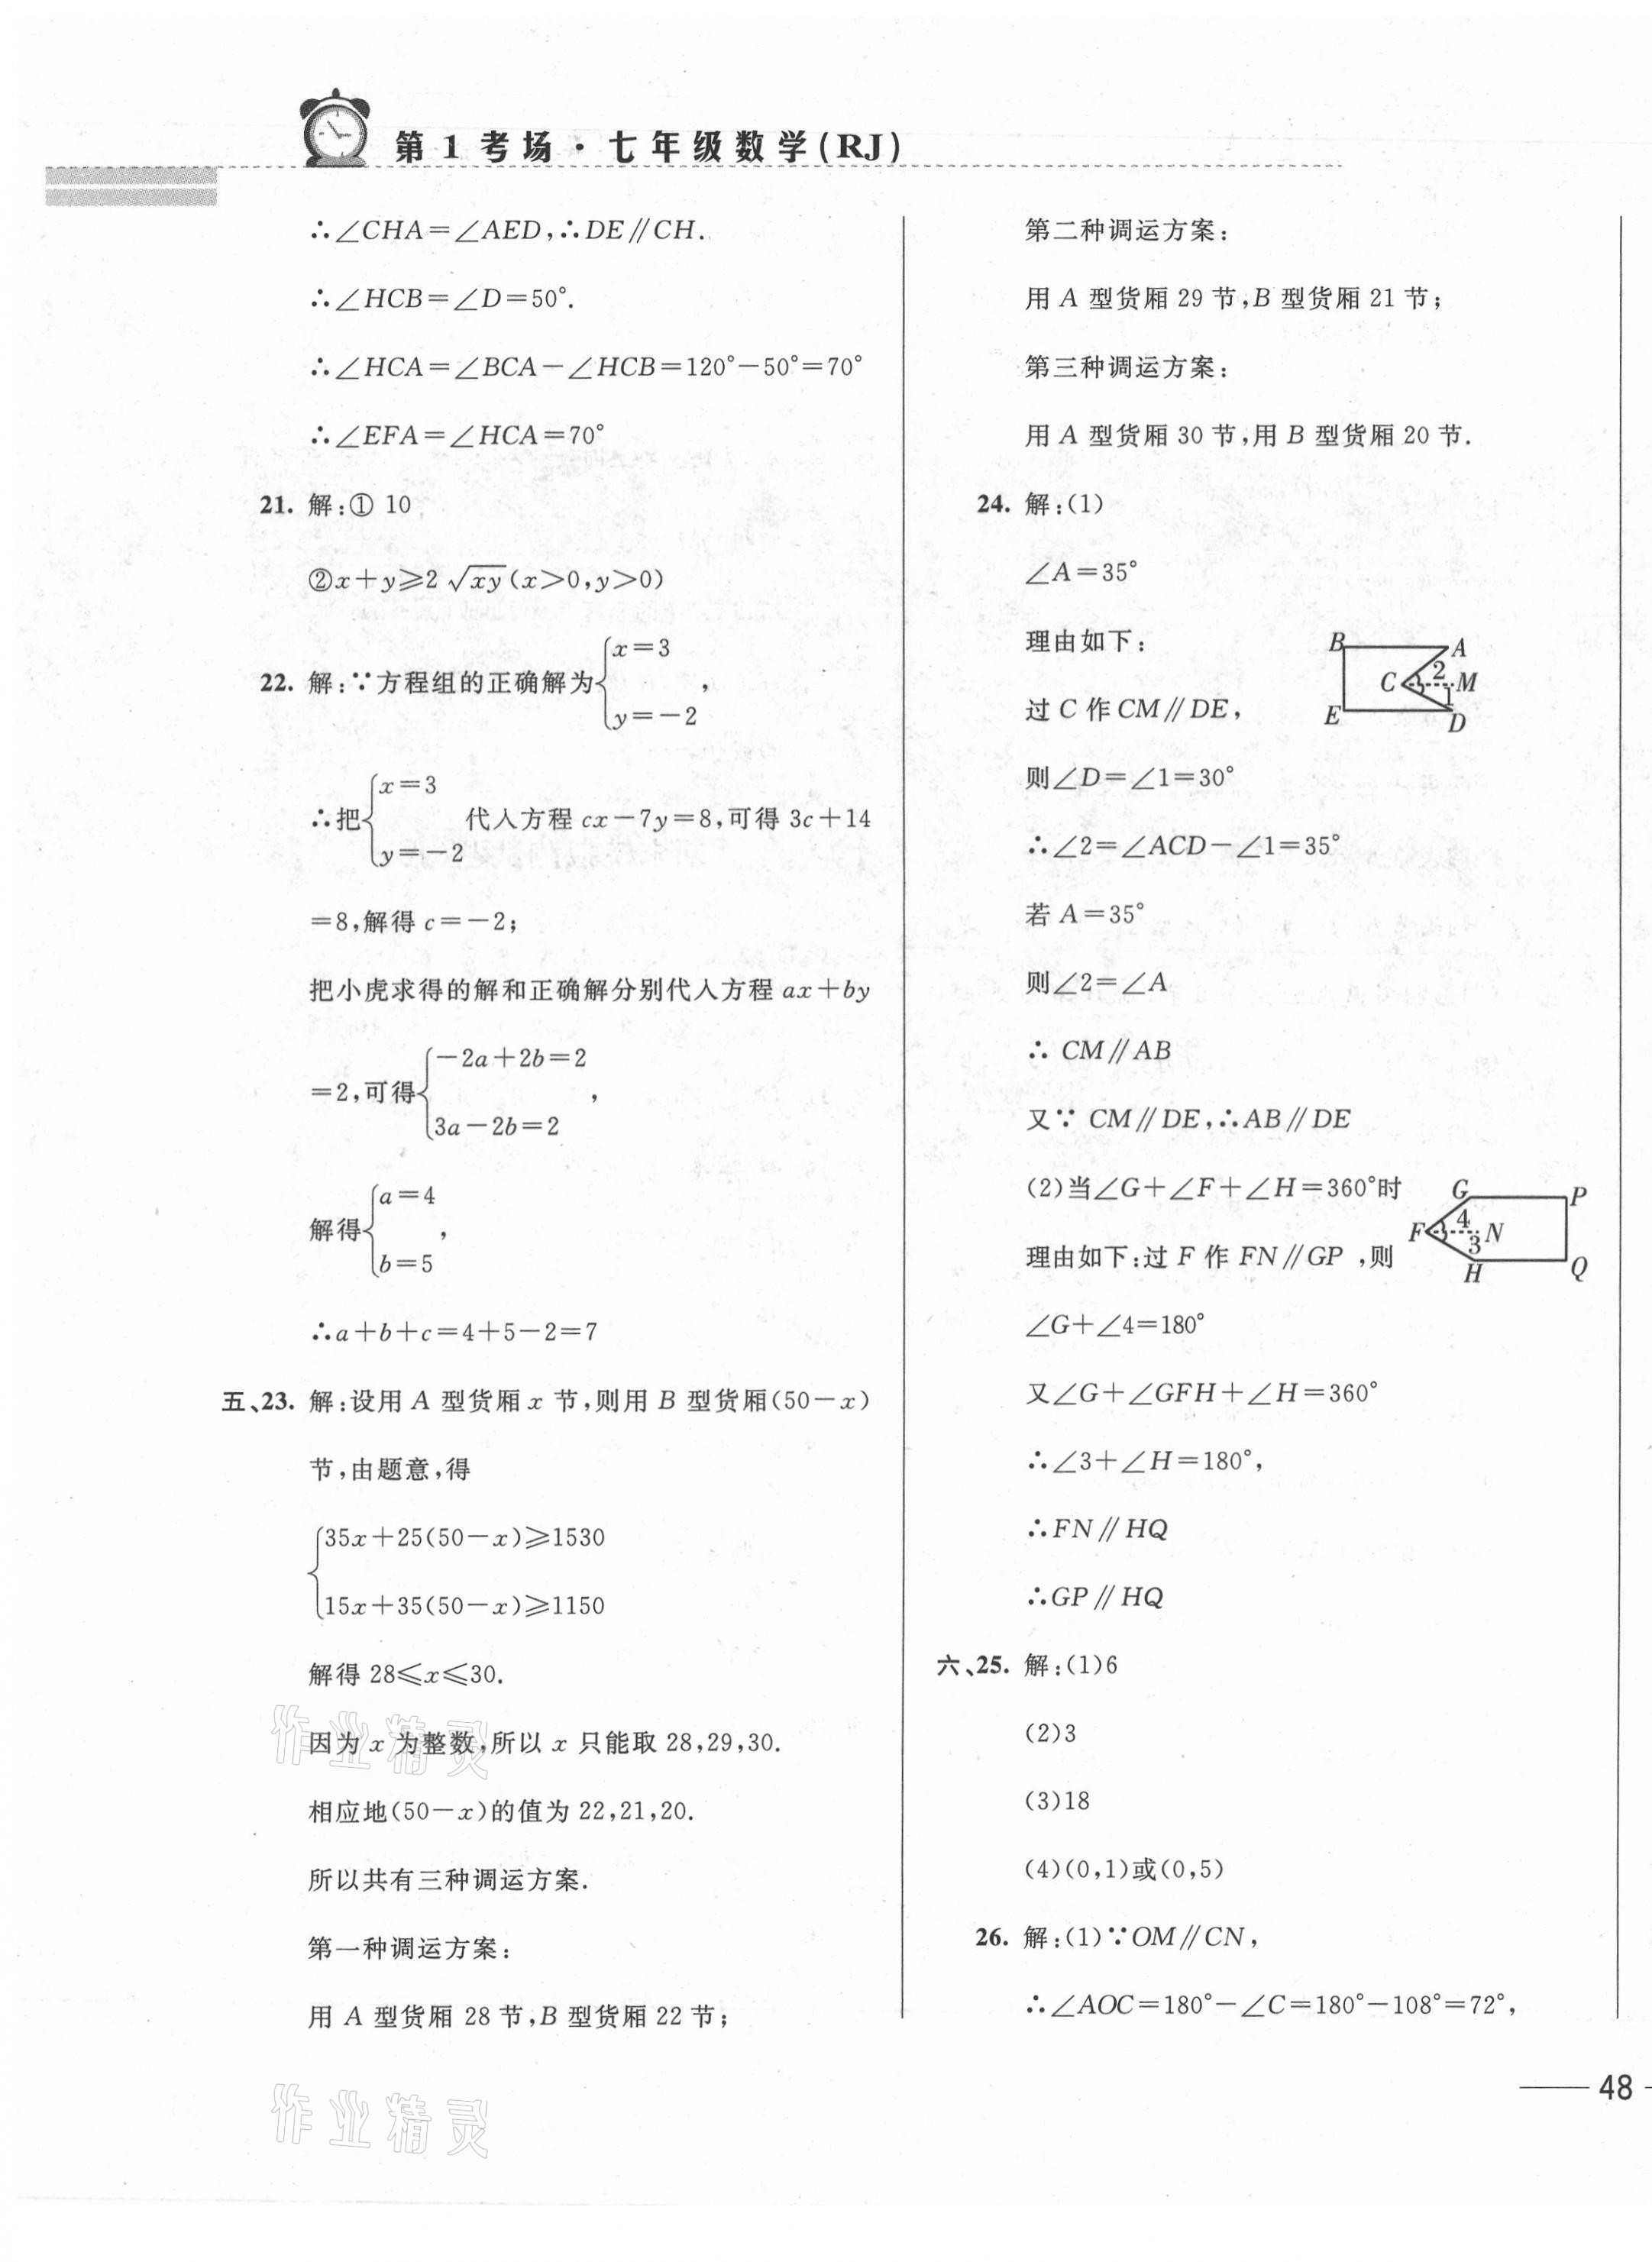 第1考场·七年级数学(RJ)
∴∠CHA=∠AED,∴DE∥CH.
∴∠HCB=∠D=50°.
∴∠HCA=∠BCA-∠HCB=120°-50°=70°
∴∠EFA=∠HCA=70°
21. 解:① 10
②x+y≥2√xy(x>0,y>0)
22. 解:∵方程组的正确解为{x=3
y=-2,
∴把{x=3
y=-2代人方程 cx-7y=8,可得 3c+14
=8,解得 c=-2;
把小虎求得的解和正确解分别代人方程 ax+by
=2,可得{-2a+2b=2
3a-2b=2,
解得{a=4
b=5,
∴a+b+c=4+5-2=7
五、23. 解:设用 A 型货厢 x 节,则用 B 型货厢(50-x)
节,由题意,得
{35x+25(50-x)≥1530
15x+35(50-x)≥1150
解得 28≤x≤30.
因为 x 为整数,所以 x 只能取 28,29,30.
相应地(50-x)的值为 22,21,20.
所以共有三种调运方案.
第一种调运方案:
用 A 型货厢 28 节,B 型货厢 22 节;
第二种调运方案:
用 A 型货厢 29 节,B 型货厢 21 节;
第三种调运方案:
用 A 型货厢 30 节,用 B 型货厢 20 节.
24. 解:(1)
∠A=35°
理由如下:
过 C 作 CM∥DE,
B A
C 2 M
1
E D
则∠D=∠1=30°
∴∠2=∠ACD-∠1=35°
若 A=35°
则∠2=∠A
∴ CM∥AB
又∵ CM∥DE,∴AB∥DE
(2)当∠G+∠F+∠H=360°时
理由如下:过 F 作 FN∥GP ,则
G P
F 4 N
3
H Q
∠G+∠4=180°
又∠G+∠GFH+∠H=360°
∴∠3+∠H=180°,
∴FN∥HQ
∴GP∥HQ
六、25. 解:(1)6
(2)3
(3)18
(4)(0,1)或(0,5)
26. 解:(1)∵OM∥CN,
∴∠AOC=180°-∠C=180°-108°=72°,
48
作业精灵
作业精灵